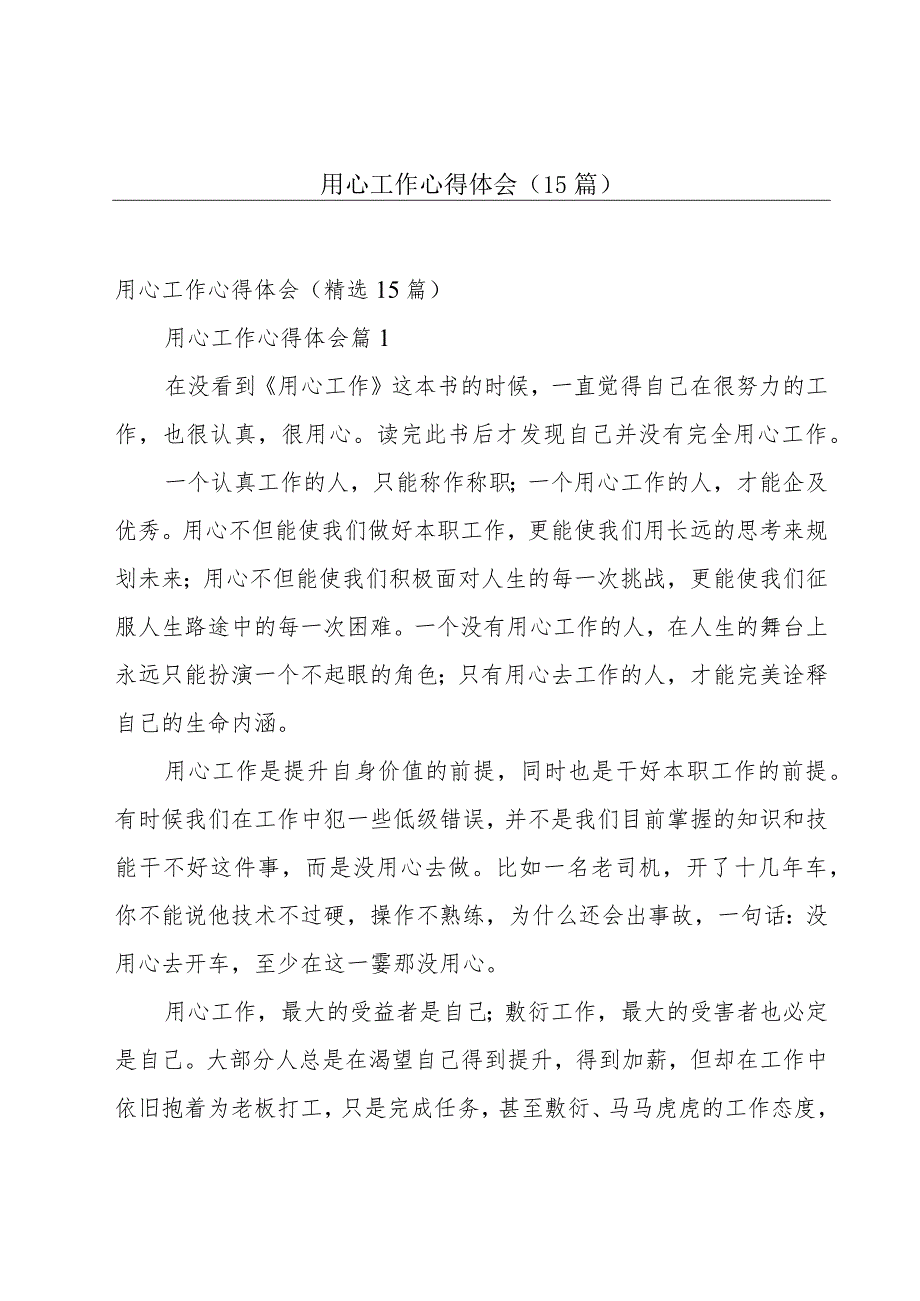 用心工作心得体会（15 篇）
用心工作心得体会（精选 15 篇）
用心工作心得体会篇 1
在没看到《用心工作》这本书的时候，一直觉得自己在很努力的工
作，也很认真，很用心。读完此书后才发现自己并没有完全用心工作。
一个认真工作的人，只能称作称职；一个用心工作的人，才能企及
优秀。用心不但能使我们做好本职工作，更能使我们用长远的思考来规
划未来；用心不但能使我们积极面对人生的每一次挑战，更能使我们征
服人生路途中的每一次困难。一个没有用心工作的人，在人生的舞台上
永远只能扮演一个不起眼的角色；只有用心去工作的人，才能完美诠释
自己的生命内涵。
用心工作是提升自身价值的前提，同时也是干好本职工作的前提。
有时候我们在工作中犯一些低级错误，并不是我们目前掌握的知识和技
能干不好这件事，而是没用心去做。比如一名老司机，开了十几年车，
你不能说他技术不过硬，操作不熟练，为什么还会出事故，一句话：没
用心去开车，至少在这一霎那没用心。
用心工作，最大的受益者是自己；敷衍工作，最大的受害者也必定
是自己。大部分人总是在渴望自己得到提升，得到加薪，但却在工作中
依旧抱着为老板打工，只是完成任务，甚至敷衍、马马虎虎的工作态度，